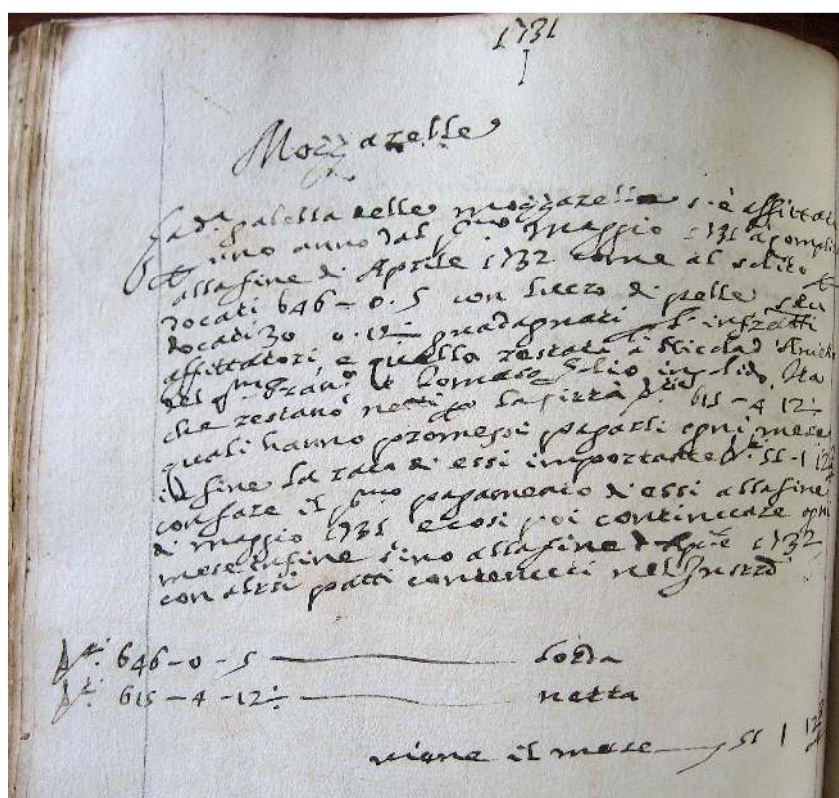 1731
Mozzarelle
La d.a gabella delle mozzarelle s'è affittata
uno anno dal p.mo Maggio 1731 a complirsi
alla fine di Aprile 1732 come al solito
docati 646-0-5 con lucro di pelle
docati 30 0.12½ guadagnati infratti
affittatori, e quella restata à Nicola d'Aniello
del q.m Fran.o Tomaso in solido, Ita
che restano netti 615-4-12½
quali hanno promessi pagarli ogni mese
in fine la rata di essi importante 51-1-12½
con fare il p.mo pagamento di essi alla fine
di maggio 1731 e così poi continuare ogni
mese in fine sino alla fine d'Ap.le 1732
con altri patti contenuti nel
646-0-5 lorda
615-4-12½ netta
viene il mese 51 1 12